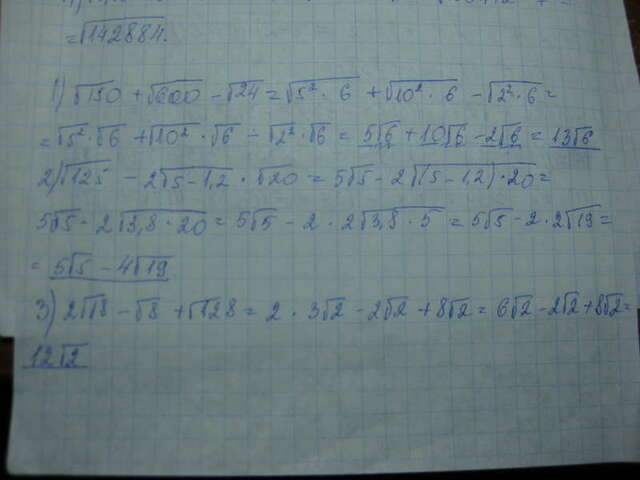 =√142884.
1) √150 + √600 - √24 = √5²·6 + √10²·6 - √2²·6 =
= √5²·√6 + √10²·√6 - √2²·√6 = 5√6 + 10√6 - 2√6 = 13√6
2) √125 - 2√5-1,2·√20 = 5√5 - 2√(5-1,2)·20 =
5√5 - 2√3,8·20 = 5√5 - 2·2√3,8·5 = 5√5 - 2·2√19 =
= 5√5 - 4√19
3) 2√18 - √8 + √128 = 2·3√2 - 2√2 + 8√2 = 6√2 - 2√2 + 8√2 =
12√2